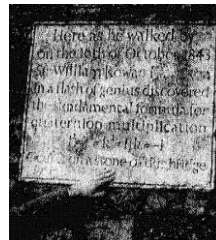 Here as he walked by
on the 16th of October 1843
Sir William Rowan
in a flash of genius discovered
the fundamental formula for
quaternion multiplication
= k² = ijk = -1
cut it on a stone of this bridge